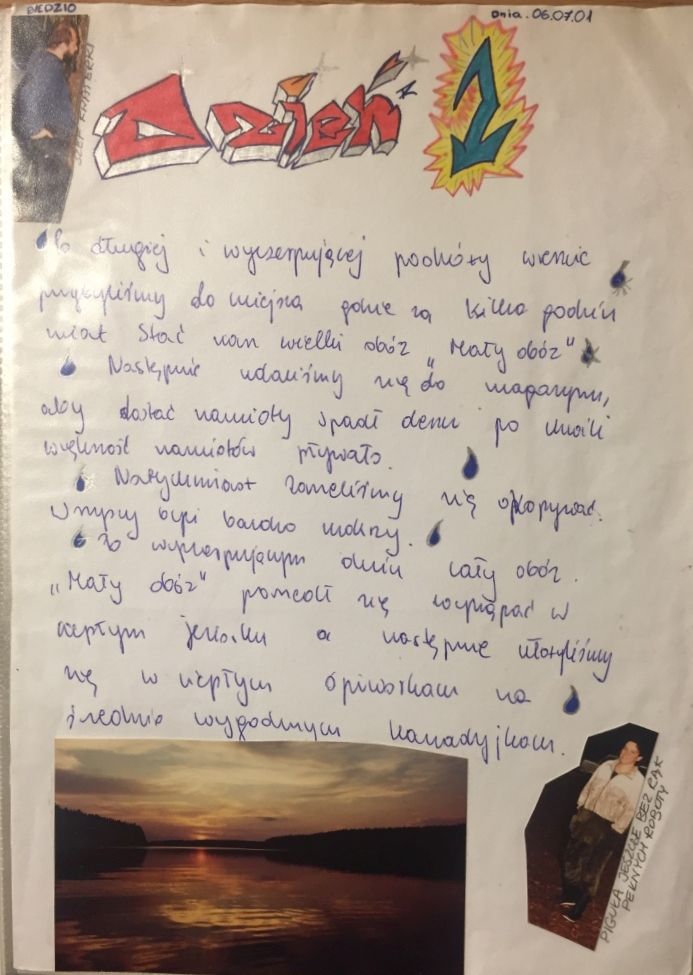 BIEDZIO
Dnia. 06.07.01
SZEF KWATERKI
Dzień 2
Po długiej i wyczerpującej podróży wreszcie
przybyliśmy do miejsca gdzie za kilka godzin
miał stać nam wielki obóz „Mały obóz"
Następnie udaliśmy się do magazynu,
aby dostać namioty spadł deszcz po chwili
większość namiotów pływało.
Natychmiast zaczeliśmy się okopywać.
Wszyscy byli bardzo mokrzy.
Po wyczerpującym dniu cały obóz.
„Mały obóz" poszedł się wykąpać w
ciepłym jeziorku a następnie ułożyliśmy
się w ciepłym śpiworkach na
średnio wygodnym kanadyjkach.
PIGUŁA JESZCZE BEZ RĄK
PEŁNYCH ROBOTY